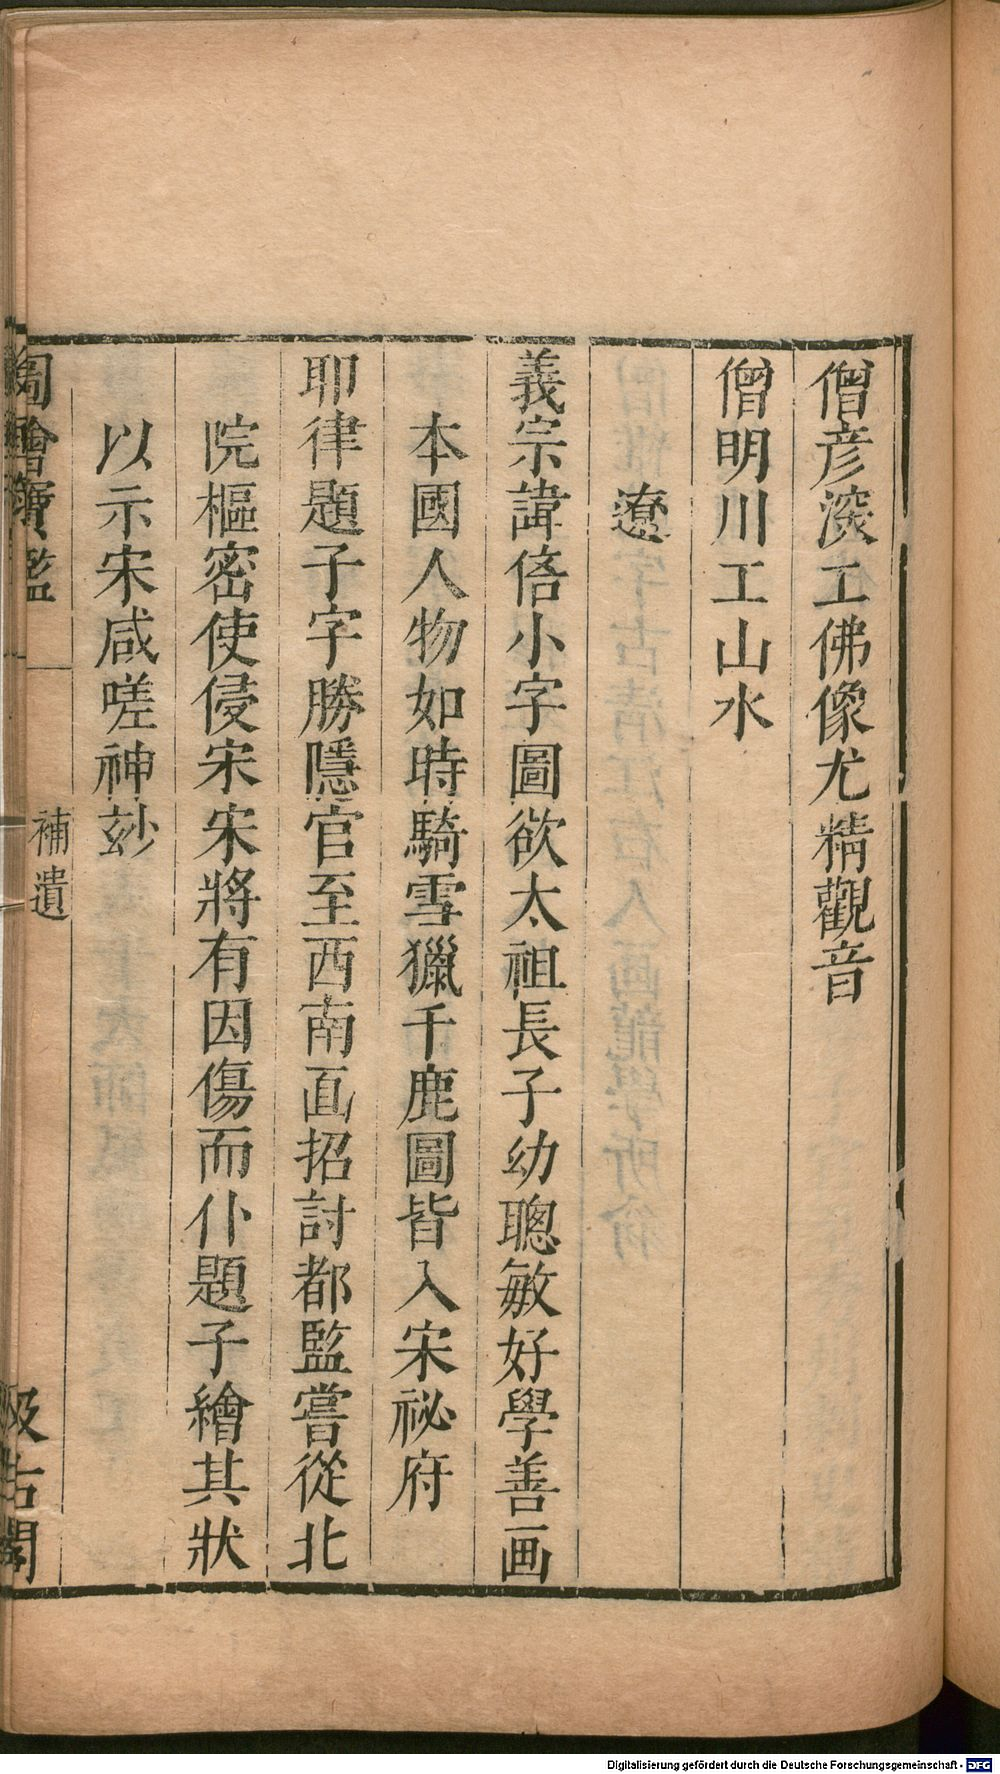 僧彦深工佛像尤精觀音
僧明川工山水
遼
義宗諱偣小字圖欲太祖長子幼聰敏好學善画
本國人物如時騎雪獵千鹿圖皆入宋祕府
耶律題子字勝隱官至西南面招討都監嘗從北
院樞密使侵宋宋將有因傷而仆題子繪其狀
以示宋咸嗟神玅
圖繪寶鑑
補遺
汲古閣
Digitalisierung gefördert durch die Deutsche Forschungsgemeinschaft - DFG